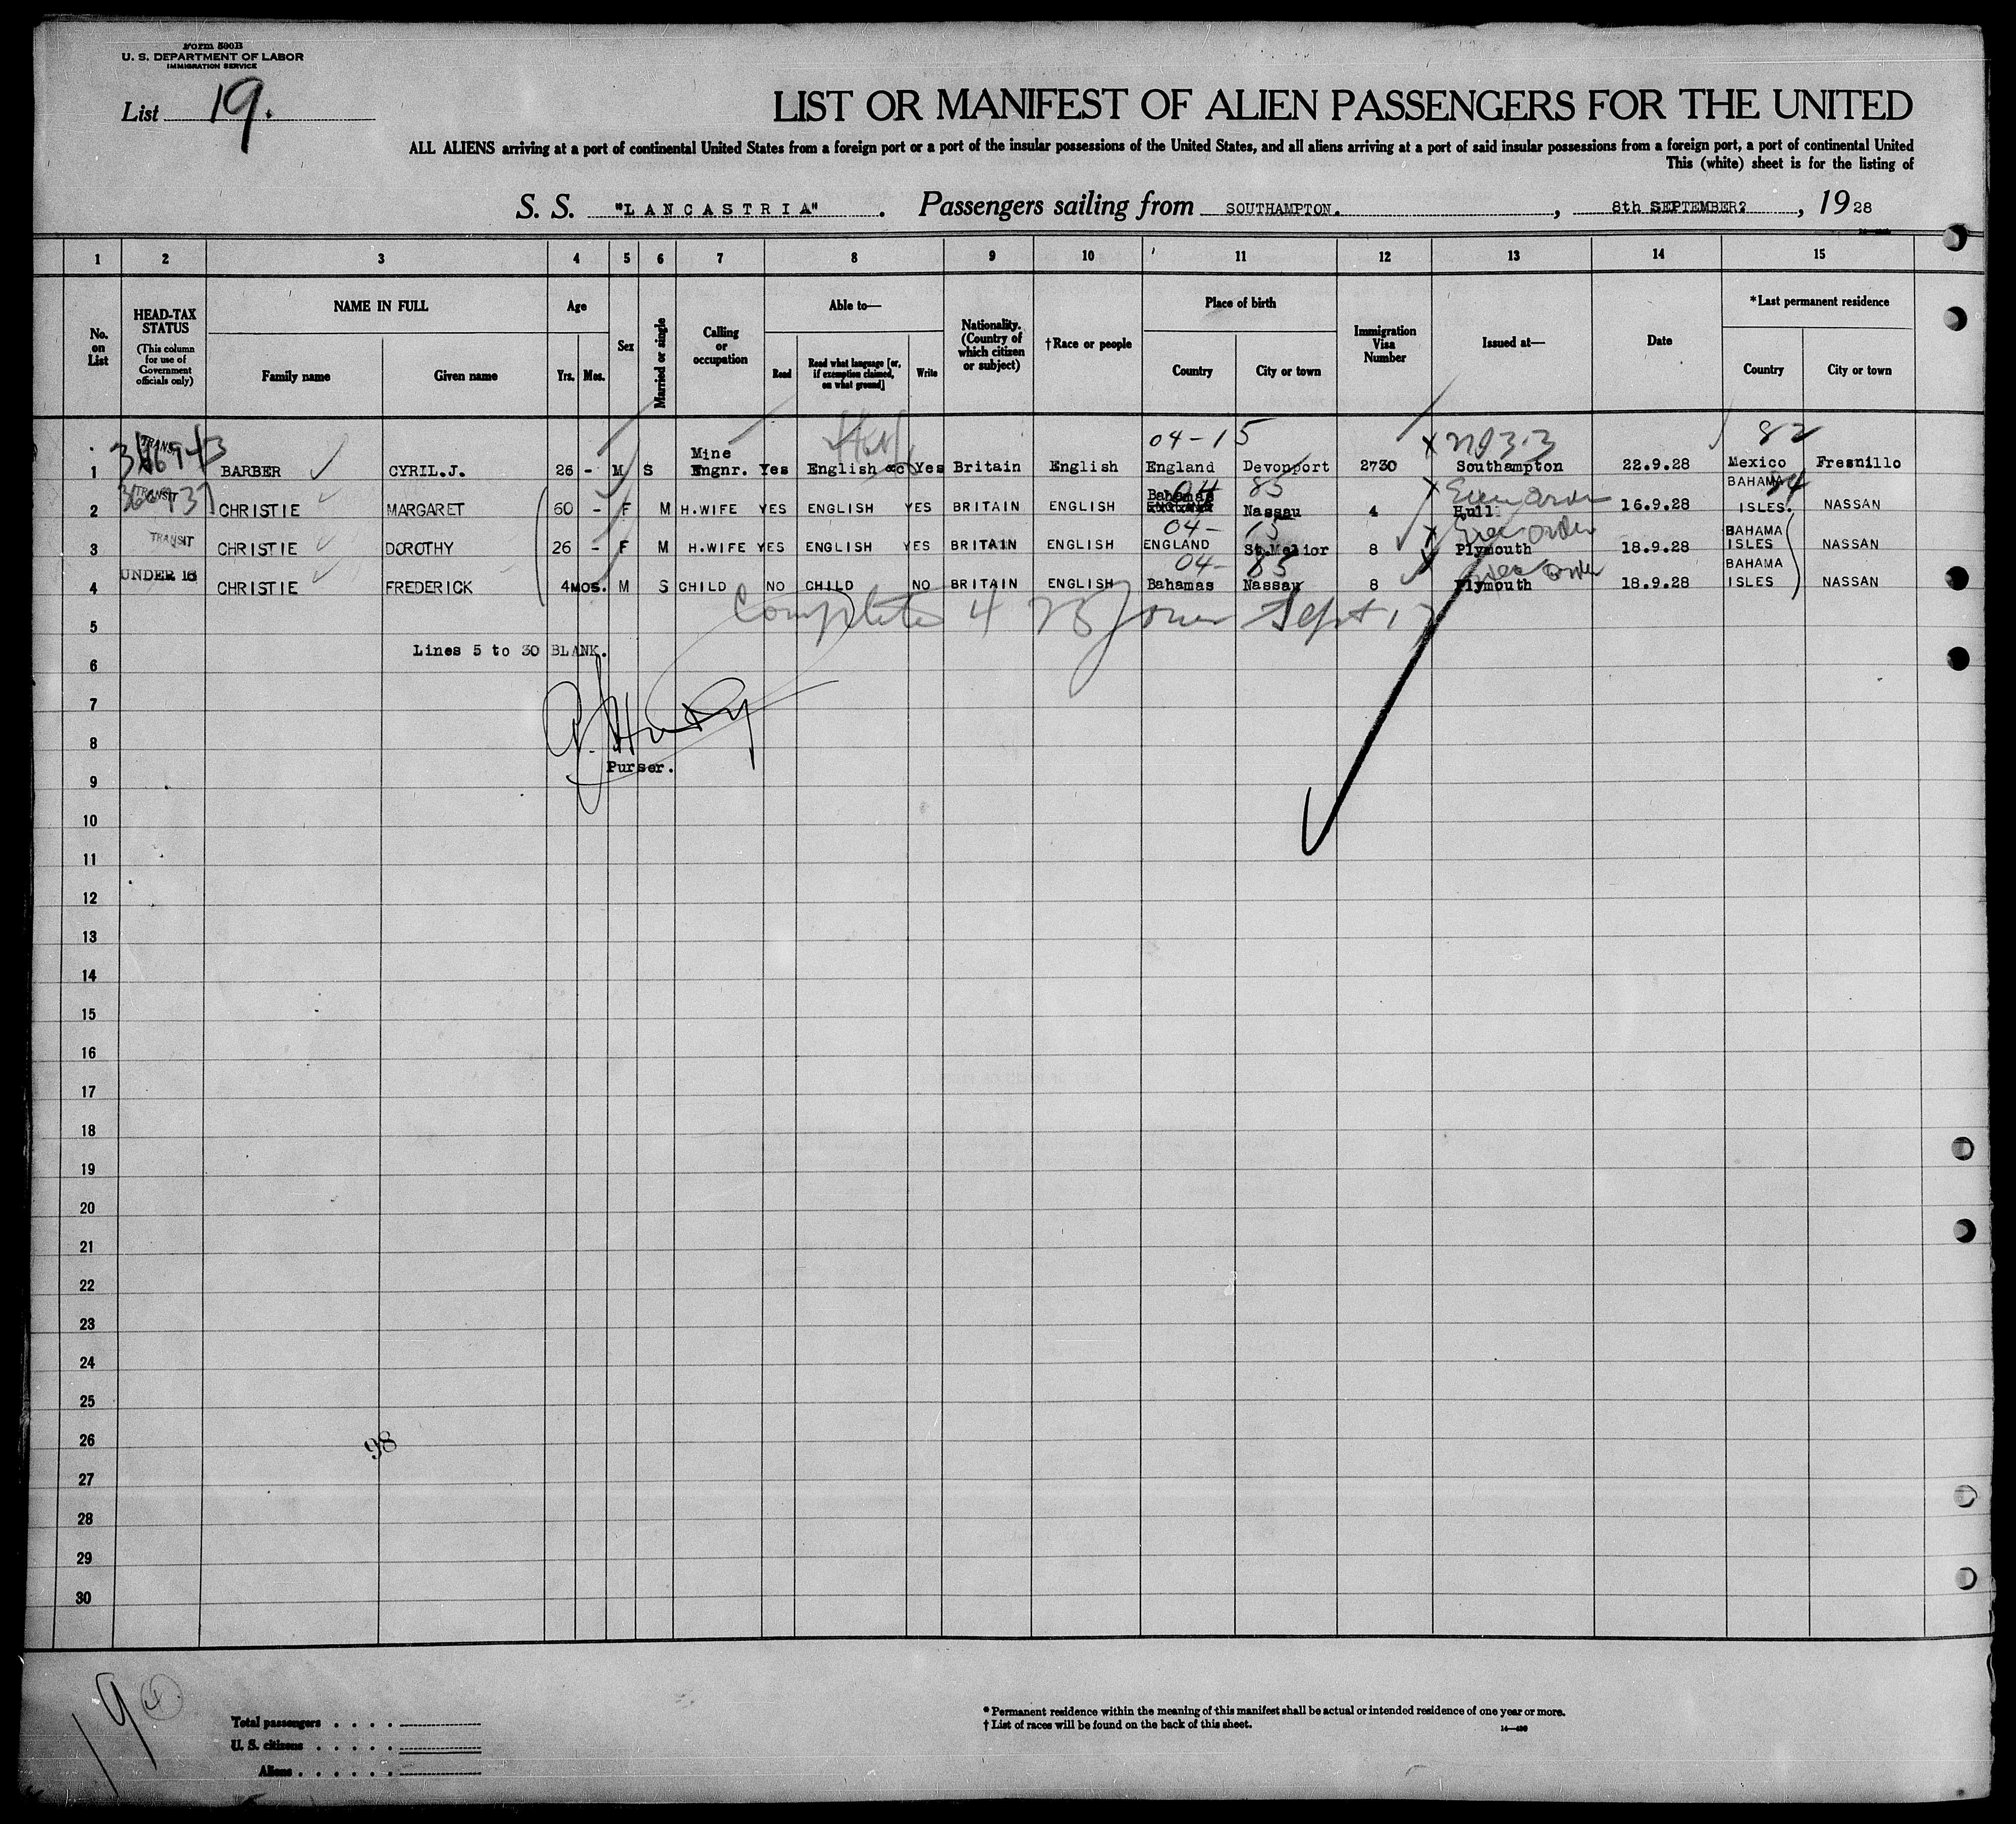 Form 500B
U. S. DEPARTMENT OF LABOR
IMMIGRATION SERVICE
List 19.
LIST OR MANIFEST OF ALIEN PASSENGERS FOR THE UNITED
ALL ALIENS arriving at a port of continental United States from a foreign port or a port of the insular possessions of the United States, and all aliens arriving at a port of said insular possessions from a foreign port, a port of continental United
This (white) sheet is for the listing of
S. S. "LANCASTRIA" . Passengers sailing from SOUTHAMPTON. , 8th SEPTEMBER? , 1928
1 2 3 4 5 6 7 8 9 10 11 12 13 14 15
No. on List
HEAD-TAX STATUS
(This column for use of Government officials only)
NAME IN FULL
Family name Given name
Age
Yrs. Mos.
Sex
Married or single
Calling or occupation
Able to—
Read Read what language [or, if exemption claimed, on what ground] Write
Nationality. (Country of which citizen or subject)
†Race or people
Place of birth
Country City or town
Immigration Visa Number
Issued at—
Date
*Last permanent residence
Country City or town
04-15 82
1 BARBER CYRIL.J. 26 - M S Mine Engnr. Yes English Yes Britain English England Devonport 2730 Southampton 22.9.28 Mexico Fresnillo
TRANSIT 04 85
2 CHRISTIE MARGARET 60 - F M H.WIFE YES ENGLISH YES BRITAIN ENGLISH Bahamas Nassau 4 Hull 16.9.28 BAHAMA ISLES. NASSAN
04- 15
3 TRANSIT CHRISTIE DOROTHY 26 - F M H.WIFE YES ENGLISH YES BRITAIN ENGLISH ENGLAND 8 Plymouth 18.9.28 BAHAMA ISLES NASSAN
04- 85
4 UNDER 16 CHRISTIE FREDERICK 4MOS. M S CHILD NO CHILD NO BRITAIN ENGLISH Bahamas Nassau 8 Plymouth 18.9.28 BAHAMA ISLES NASSAN
5
Lines 5 to 30 BLANK.
6
7
8
Purser.
9
10
11
12
13
14
15
16
17
18
19
20
21
22
23
24
25
26
98
27
28
29
30
19 4
Total passengers
U. S. citizens
Aliens
* Permanent residence within the meaning of this manifest shall be actual or intended residence of one year or more.
† List of races will be found on the back of this sheet.